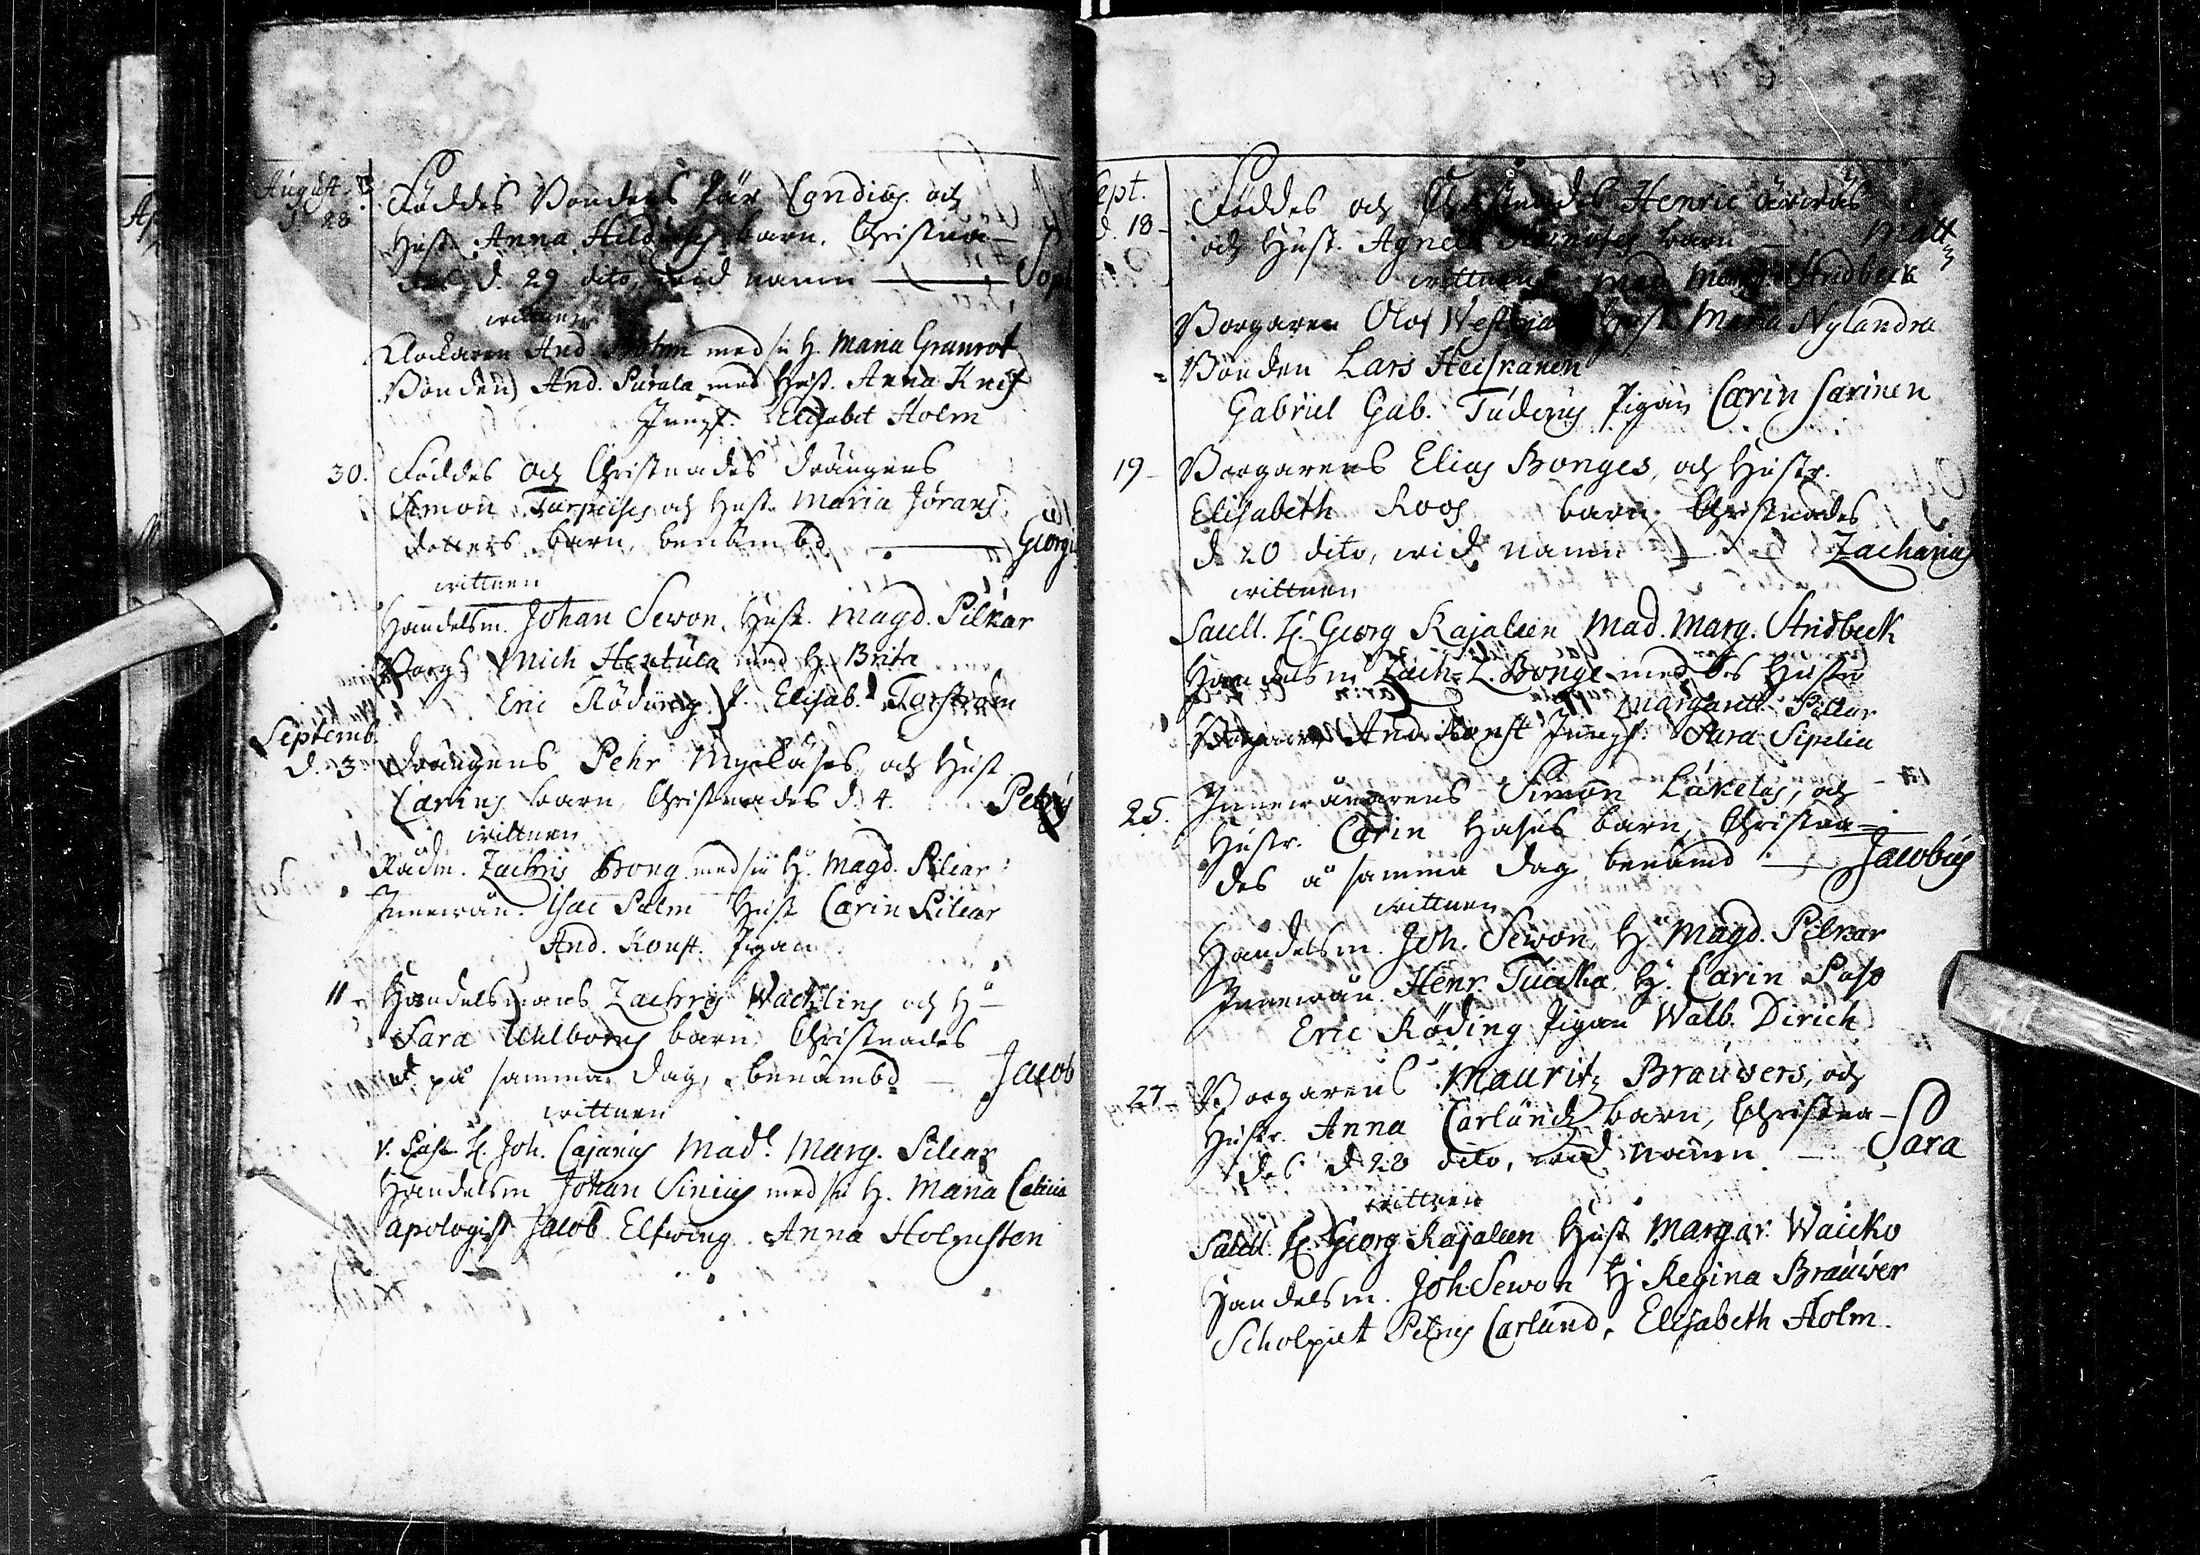 August.
d. 28. Föddes Bondens Pär och
Hust. Anna barn, Christna-
des d. 29 dito, wid namn — Soph
wittnen
Klockaren And. Holm med sin H. Maria Granrot
Bonden And. Purala med Hust. Anna Kneif
Jungf. Elisabet Holm
30. Föddes och Christnades drängens
Simon och Hust. Maria Jörans
dotters barn, benämbd — Georgi
wittnen
Handelsm. Johan Sewon, Hust. Magd. Pilkar
Borg. Mich Hentula med H. Brita
Eric Röding. P. Elisab. Torström
Septemb.
d. 3. drängens Pehr och Hust
Carins barn, Christnades d. 4. Petrus
wittnen
Rådm. Zachris Bong med sin H. Magd. Pilcar
Innewån. Isac Palm Hust Carin Pilcar
And. Konst. Pigan
11 Handelsmans Zachris Wacklins och H
Sara Uhlborns barn, Christnades
på samma dag, benämbd — Jacob
wittnen
V. Past. H. Joh. Cajanus Mad. Marg. Pilcar
Handelsm Johan Sinius med sin H. Maria
apologist Jacob Elfwing. Anna Holmsten
Sept.
d. 18 - Föddes och Christnades Henric
och Hust. Agneta barn — Matt
wittnen Mad. Marg. Stridbeck
Borgaren Olof Hust. Maria Nylandra
Bonden Lars Heiskanen
Gabriel Gab. Tuderus Pigan Carin Sarinen
19 - Borgarens Elias Bonges, och Hustr.
Elisabeth Roos barn, Christnades
d. 20 dito, wid namn — Zacharias
wittnen
Sacell. H. Georg Kajalen Mad. Marg. Stridbeck
Handelsm Zach. Z. Bonge med des Hustro
Margareta Pilcar
Borgaren And. Konst Jungf. Sara Sipelia
25. Innewånarens Simon Lukelas, och
Hustr. Carin Hasus barn, Christna=
des å samma dag benämd — Jacobus
wittnen
Handelsm. Joh. Sewon, H. Magd. Pilkar
Innewån. Henr. H. Carin Paso
Eric Röding Pigan Walb. Dirich
27 - Borgarens Mauritz Brauwers, och
Hustr. Anna Carlunds barn, Christna-
des d 28 dito, wid namn — Sara
wittnen
Sacell. H. Georg Kajalen Hust Margar. Waicko
Handelsm. Joh. Sewon H. Regina Brauwer
Scholpiet Petrus Carlund, Elisabeth Holm.